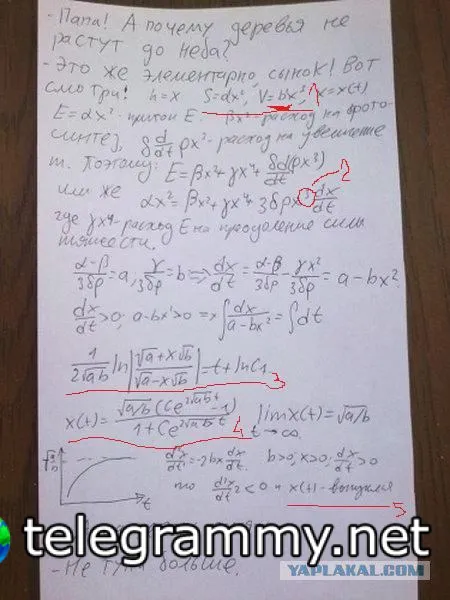 - Папа! А почему деревья не
растут до неба?
- Это же элементарно, сынок! Вот
смотри! h=x S=αx², V=bx³ 1 x=x(t)
E=αx² - приток E. βx² - расход на фото-
синтез, δ d/dt ρx³ - расход на увеличение
m. Поэтому: E=βx²+γx⁴+δd(ρx³)/dt
2
или же αx²=βx²+γx⁴+3δρx³ dx/dt
где γx⁴ - расход E на преодоление силы
тяжести.
(α-β)/3δρ=a, γ/3δρ=b => dx/dt = (α-β)/3δρ - γx²/3δρ = a-bx².
dx/dt>0, a-bx²>0 => ∫dx/(a-bx²)=∫dt
1/(2√ab) ln|(√a+x√b)/(√a-x√b)|=t+lnC₁. 3
x(t)=√a/b (Ce^(2√ab t)-1)/(1+Ce^(2√ab t)) 4 lim x(t)=√a/b
t→∞
√a/b d²x/dt²=-2bx dx/dt b>0, x>0, dx/dt>0
t то d²x/dt²<0 и x(t) - выпукла 5
telegrammy.net
YAPLAKAL.COM
- Не туп больше.